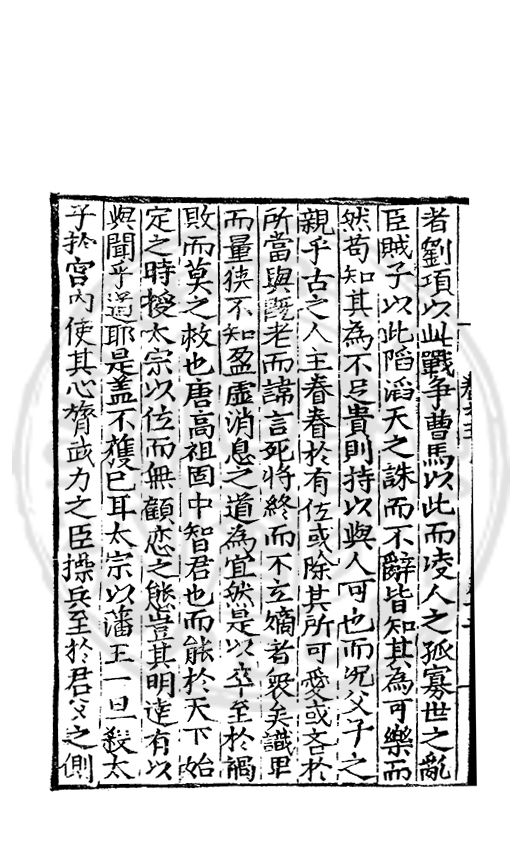 者劉項以此戰爭曹馬以此而凌人之孤寡世之亂
臣賊子以此陷滔天之誅而不辭皆知其為可樂而
然苟知其為不足貴則持以與人可也而况父子之
親乎古之人主眷眷於有位或除其所可愛或吝於
所當與旣老而諱言死將終而不立嫡者衆矣識卑
而量狹不知盈虛消息之道為宜然是以卒至於禍
敗而莫之救也唐高祖固中智君也而能於天下始
定之時授太宗以位而無顧戀之態豈其明達有以
與聞乎道耶是盖不獲已耳太宗以藩王一旦殺太
子於宮內使其心膂武力之臣操兵至於君父之側